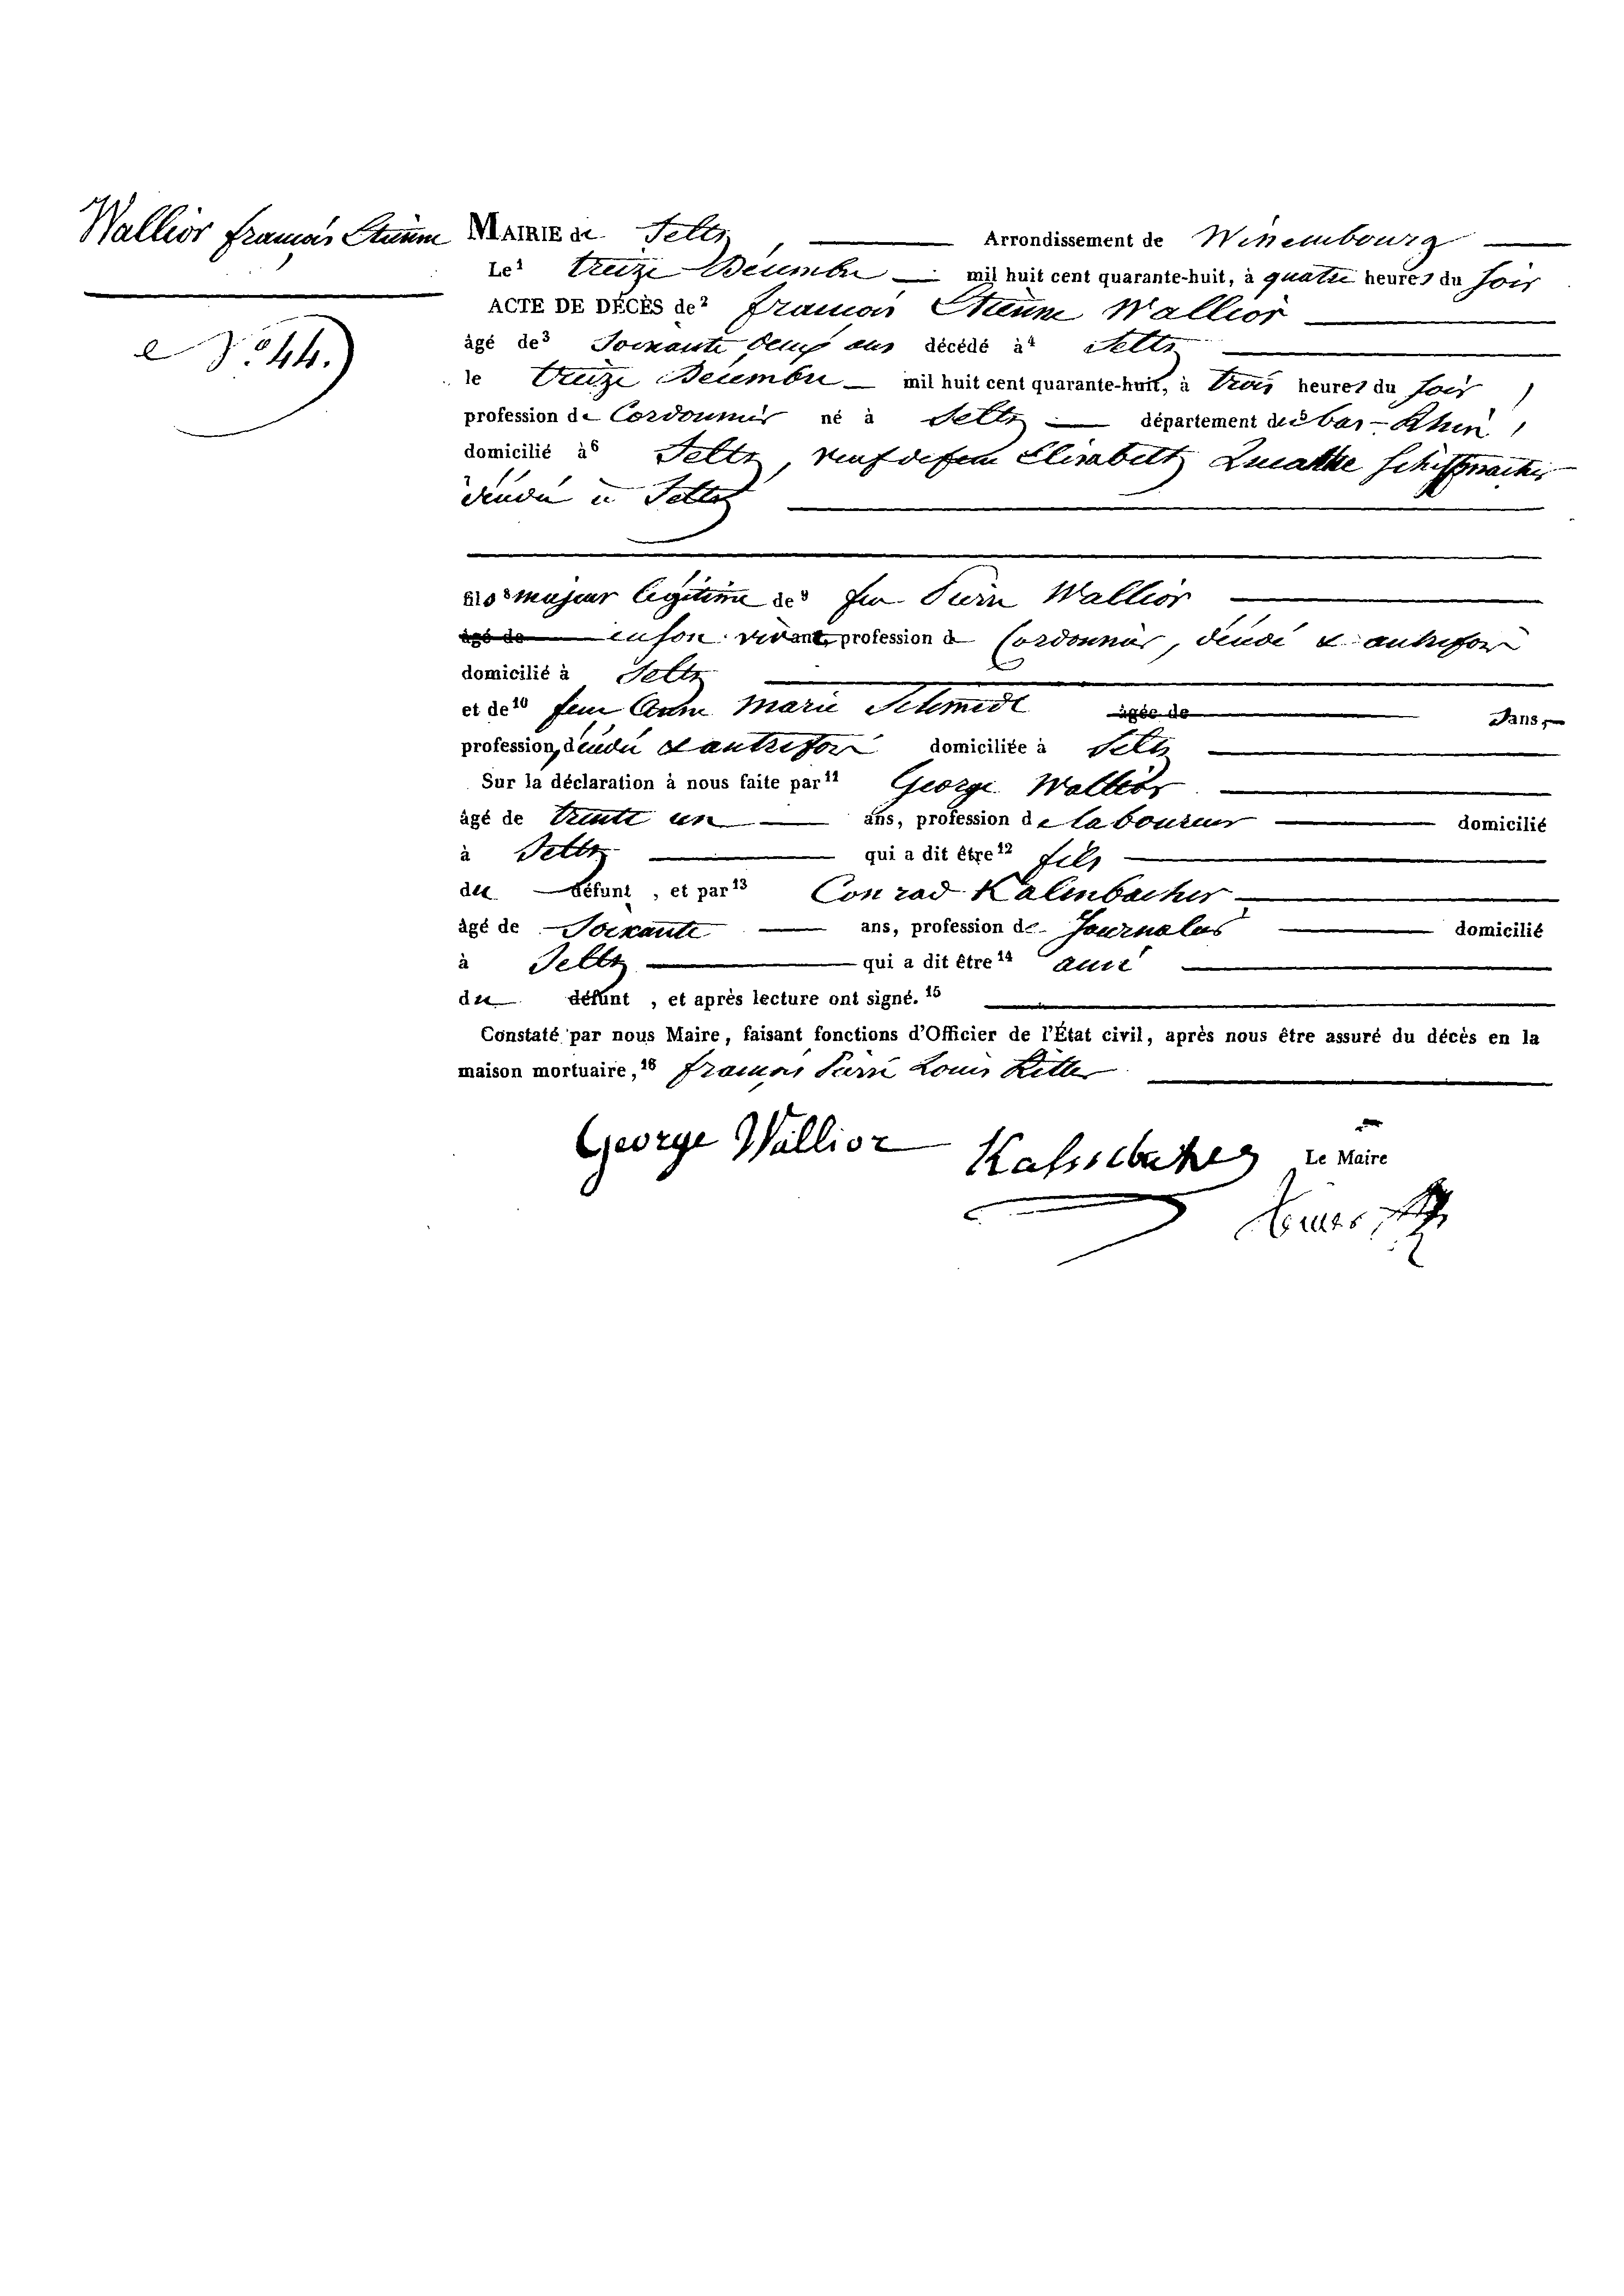 Wallior François Etienne
N.° 44.
MAIRIE de Seltz, Arrondissement de Wissembourg
Le¹ treize Décembre mil huit cent quarante-huit, à quatre heures du soir
ACTE DE DÉCÈS de² François Etienne Wallior
âgé de³ Soixante deux ans décédé à⁴ Seltz
le treize Décembre mil huit cent quarante-huit, à trois heures du soir,
profession de Cordonnier né à Seltz département du⁵ bas-Rhin,
domicilié à⁶ Seltz, veuf de feue Elisabeth Schiffmacher
décédée à Seltz
fils⁸ majeur légitime de⁹ feu Pierre Wallior
âgé de en son vivant, profession de Cordonnier, décédé & autrefois
domicilié à Seltz
et de¹⁰ feue Anne Marie Schmidt âgée de ans,
profession, décédée & autrefois domiciliée à Seltz
Sur la déclaration à nous faite par¹¹ George Wallior
âgé de trente un ans, profession de laboureur domicilié
à Seltz qui a dit être¹² fils
du défunt, et par¹³ Conrad Kalmbacher
âgé de Soixante ans, profession de Journalier domicilié
à Seltz qui a dit être¹⁴ ami
du défunt, et après lecture ont signé.¹⁵
Constaté par nous Maire, faisant fonctions d'Officier de l'État civil, après nous être assuré du décès en la
maison mortuaire,¹⁶ François Pierre Louis Ritter
George Wallior Le Maire